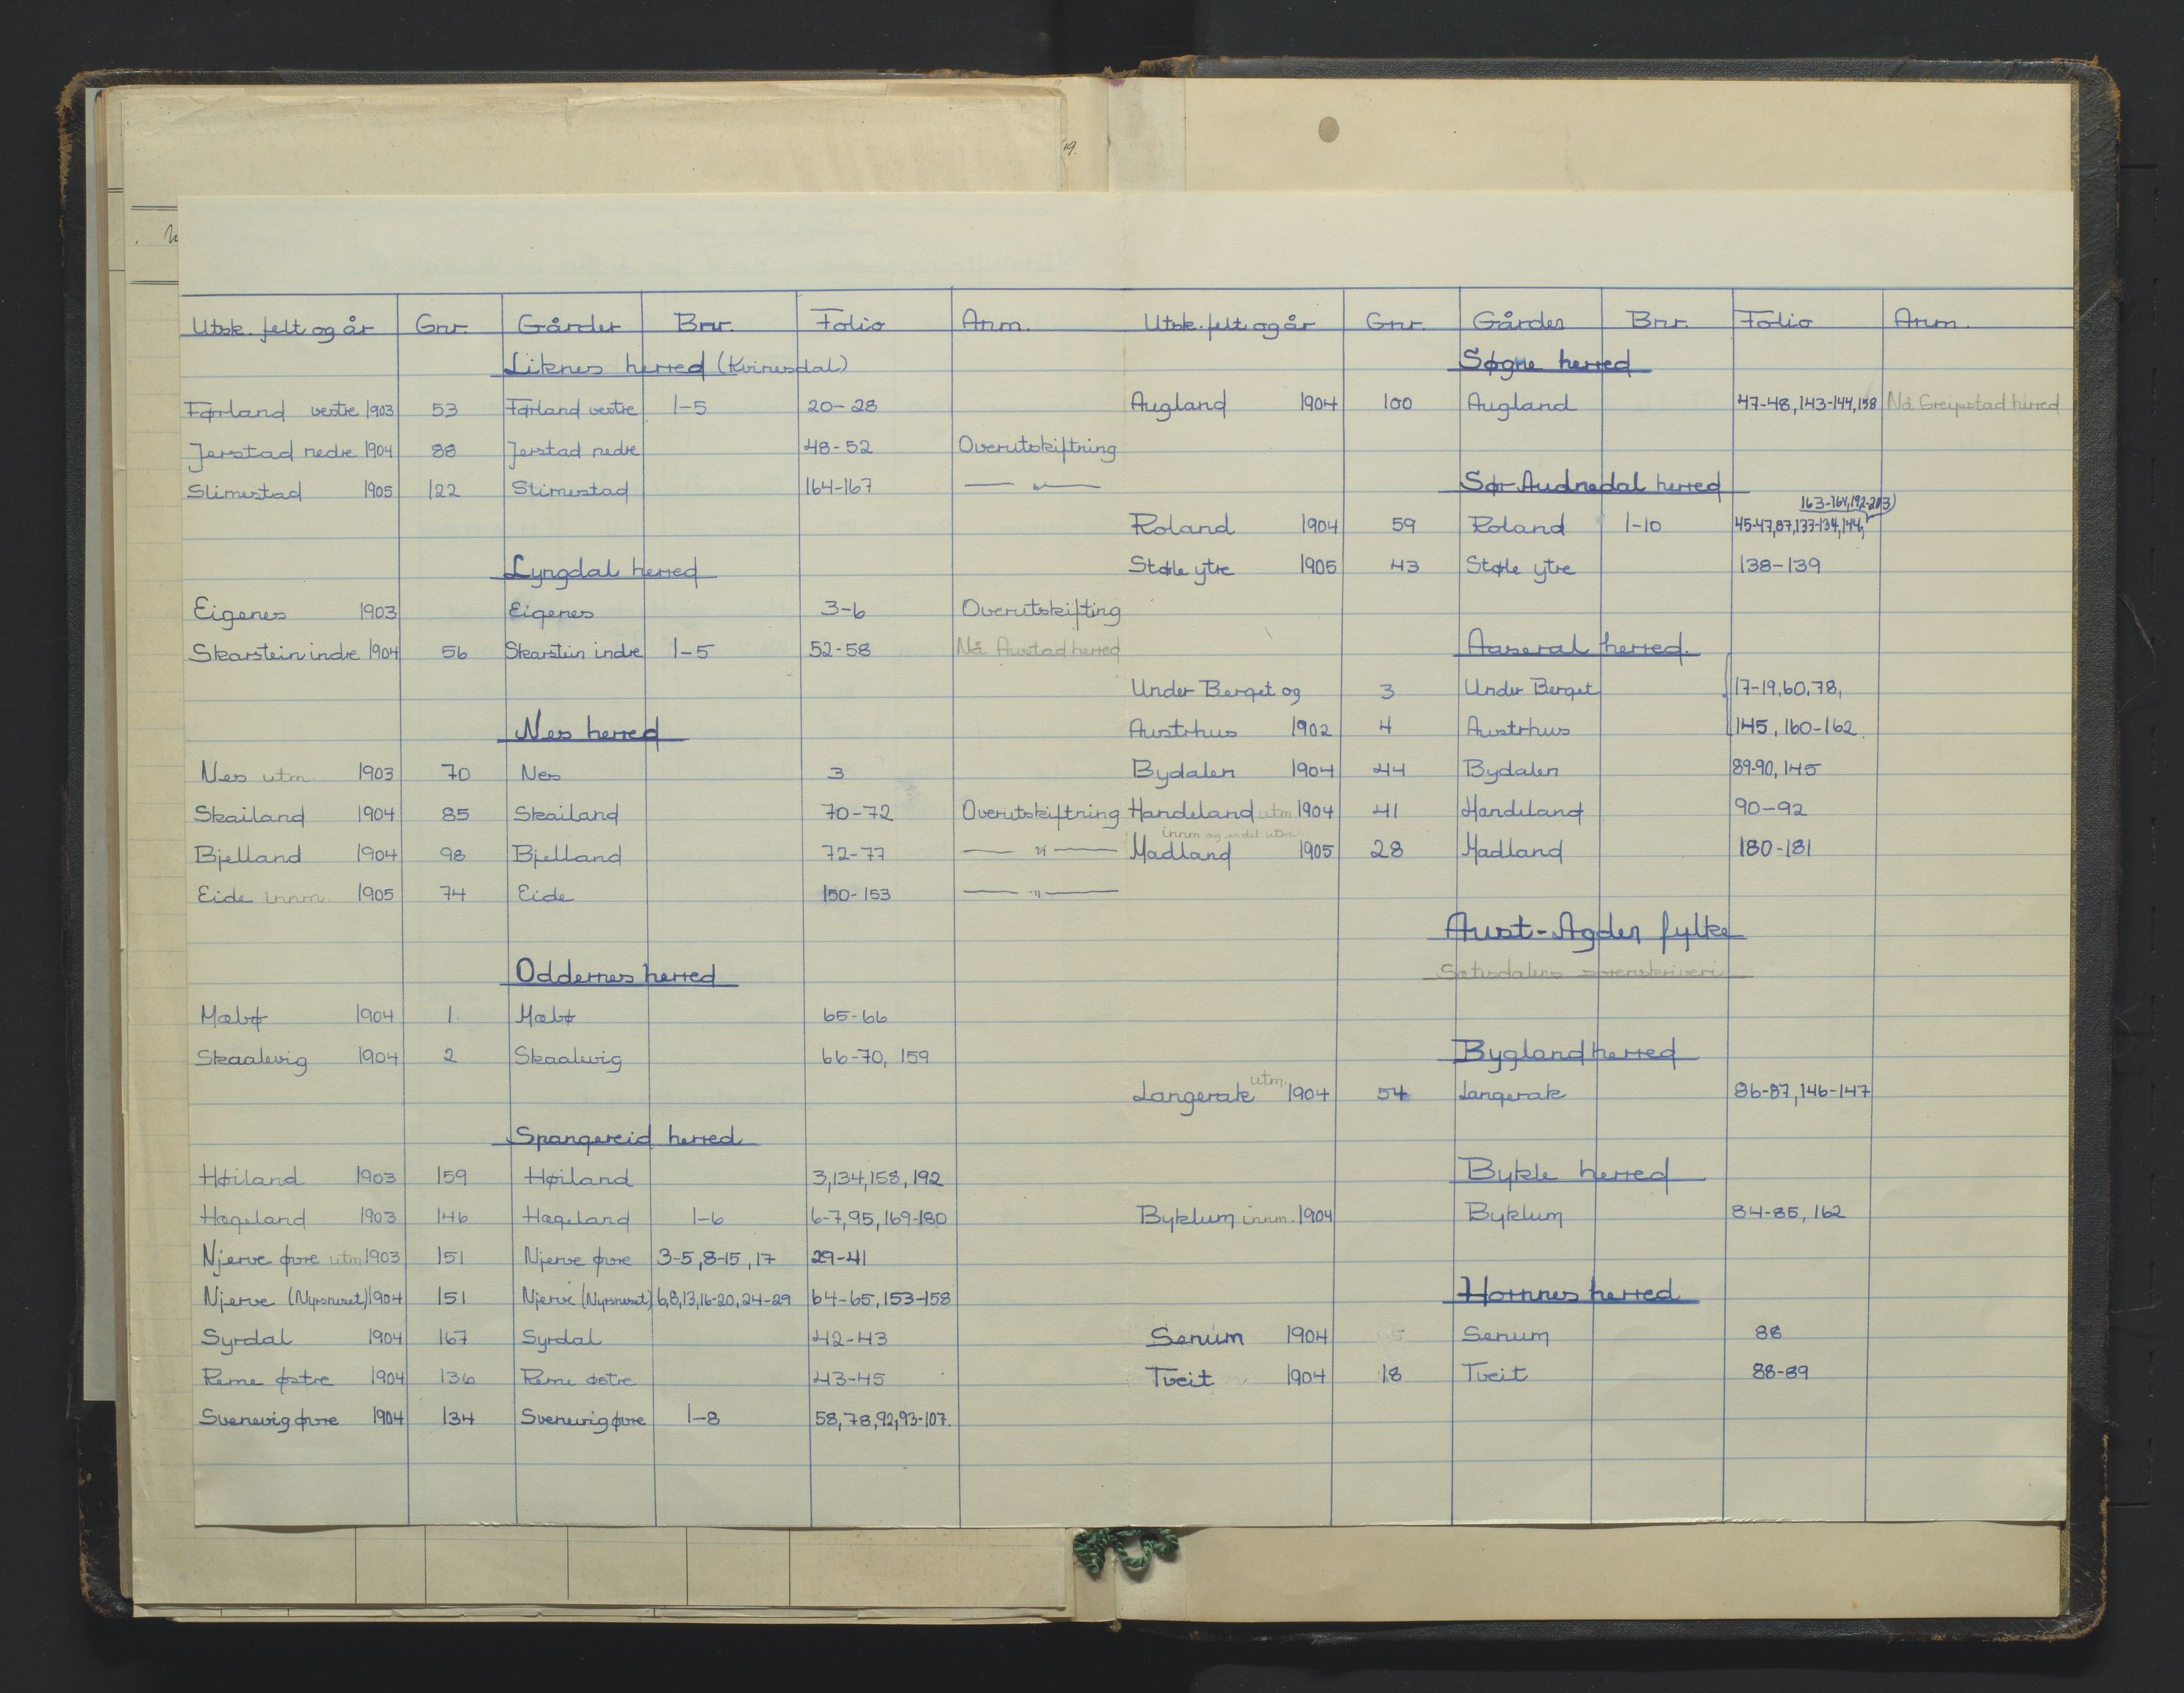 19.
Utsk. felt og år Gnr. Gårder Bnr. Folio Anm.
Liknes herred (Kvinesdal)
Førland vestre 1903 53 Førland vestre 1-5 20-28
Jerstad nedre 1904 88 Jerstad nedre 48-52 Overutskiftning
Slimestad 1905 122 Slimestad 164-167 — " —
Lyngdal herred
Eigenes 1903 Eigenes 3-6 Overutskifting
Skarstein indre 1904 56 Skarstein indre 1-5 52-58 Nå Austad herred
Nes herred
Nes utm. 1903 70 Nes 3
Skailand 1904 85 Skailand 70-72 Overutskiftning
Bjelland 1904 98 Bjelland 72-77 — " —
Eide innm. 1905 74 Eide 150-153 — " —
Oddernes herred
Mæbø 1904 1. Mæbø 65-66
Skaalevig 1904 2 Skaalevig 66-70, 159
Spangereid herred
Høiland 1903 159 Høiland 3,134,158,192
Hægeland 1903 146 Hægeland 1-6 6-7,95,169-180
Njerve øvre utm 1903 151 Njerve øvre 3-5,8-15,17 29-41
Njerve (Nyrsneset) 1904 151 Njerve (Nyrsneset) 6,8,13,16-20,24-29 64-65,153-158
Syrdal 1904 167 Syrdal 42-43
Reme østre 1904 136 Reme østre 43-45
Svenevig øvre 1904 134 Svenevig øvre 1-8 58,78,92,93-107.
Utsk. felt og år Gnr. Gårder Bnr. Folio Anm.
Søgne herred
Augland 1904 100 Augland 47-48,143-144,158 Nå Greipstad herred
Sør-Audnedal herred
163-164,192-203)
Roland 1904 59 Roland 1-10 45-47,87,133-134,144,
Støle ytre 1905 43 Støle ytre 138-139
Aaseral herred.
Under Berget og 3 Under Berget 17-19,60,78,
Austrhus 1902 4 Austrhus 145, 160-162.
Bydalen 1904 44 Bydalen 89-90,145
Handeland utm 1904 41 Handeland 90-92
innm. og endel utm.
Madland 1905 28 Madland 180-181
Aust-Agder fylke
Setesdalens sorenskriveri
Bygland herred
Langerak utm. 1904 54 Langerak 86-87,146-147
Bykle herred
Byklum innm. 1904 Byklum 84-85, 162
Hornnes herred
Senum 1904 Senum 86
Tveit 1904 18 Tveit 88-89